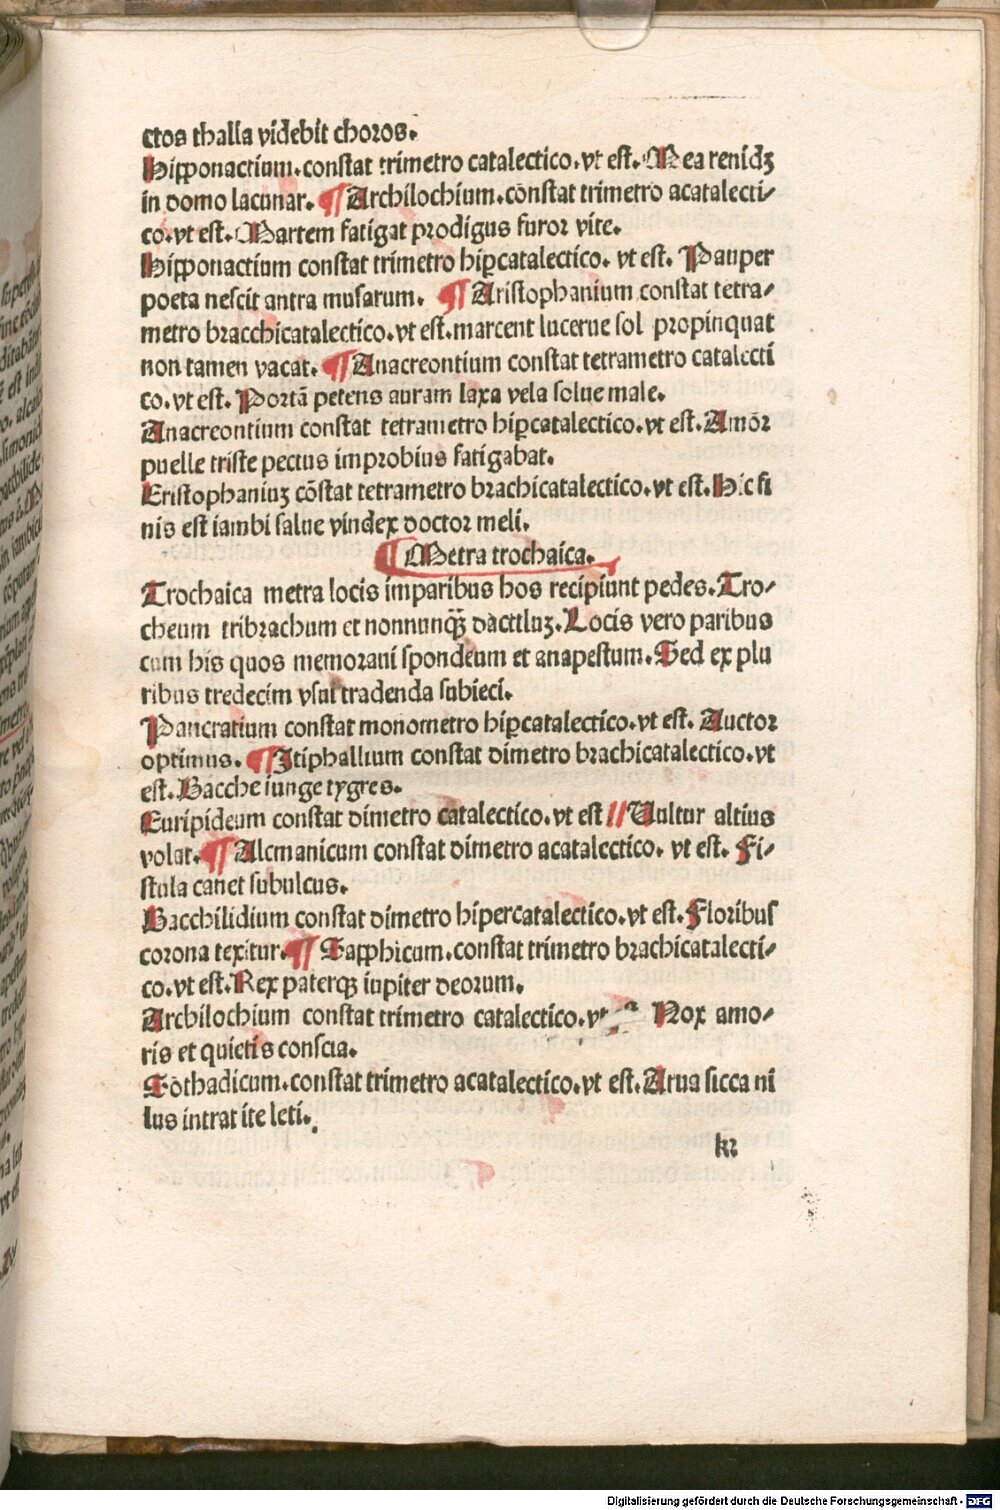 ctos thalla videbit choros.
Hipponactium.constat trimetro catalectico.vt est.Mea renidꝫ
in domo lacunar. ¶ Archilochium.constat trimetro acatalecti-
co.vt est.Martem fatigat prodigus furor vite.
Hipponactium constat trimetro hiꝑcatalectico. vt est. Pauper
poeta nescit antra musarum. ¶ Aristophanium constat tetra-
metro bracchicatalectico.vt est.marcent lucerne sol propinquat
non tamen vacat. ¶ Anacreontium constat tetrametro catalecti
co.vt est. Portā petens auram laxa vela solue male.
Anacreontium constat tetrametro hiꝑcatalectico.vt est.Amōr
puelle triste pectus improbius fatigabat.
Eristophaniuꝫ cōstat tetrametro brachicatalectico.vt est.Hic fi
nis est iambi salue vindex doctor meli.
Metra trochaica.
Trochaica metra locis imparibus hos recipiunt pedes.Tro-
cheum tribrachum et nonnunqꝫ dacttluꝫ.Locis vero paribus
cum his quos memoraui spondeum et anapestum.Sed ex plu
ribus tredecim vsui tradenda subieci.
Pancratium constat monometro hiꝑcatalectico.vt est. Auctor
optimus. ¶ Itiphallium constat dimetro brachicatalectico.vt
est. Bacche iunge tygres.
Euripideum constat dimetro catalectico.vt est // Uultur altius
volat. ¶ Alcmanicum constat dimetro acatalectico. vt est. Fi-
stula canet subulcus.
Bacchilidium constat dimetro hipercatalectico.vt est.Floribus
corona texitur. ¶ Sapphicum.constat trimetro brachicatalecti-
co.vt est.Rex paterqꝫ iupiter deorum.
Archilochium constat trimetro catalectico.vt Nox amo-
ris et quietis conscia.
Sōthadicum.constat trimetro acatalectico.vt est.Arua sicca ni
lus intrat ite leti.
Digitalisierung gefördert durch die Deutsche Forschungsgemeinschaft - DFG